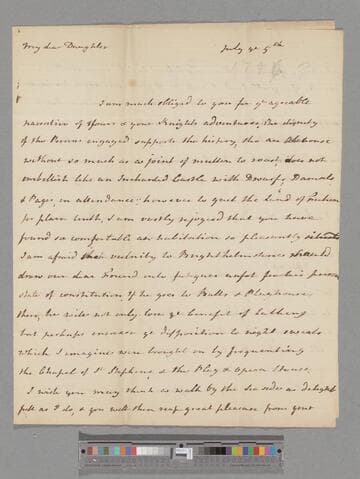 My dear Daughter July ye 5th
I am much obliged to you for ye agreable
narrative of yours & your Knights adventures, the dignity
of the Persons engaged supports the history, tho' an Alehouse
without so much as a joint of mutton to roast, does not
embellish like an Inchanted Castle with Dwarfs, Damsels
& Pages, in attendance: however to quit the land of
for plain truth, I am vastly rejoyced that you have
found so comfortable an habitation so pleasantly situated
I am afraid the vicinity to Brighthelmstone should
draw our dear Friend into fatigues unfit for his present
state of constitution, if he goes to Balls & Playhouses
there, he will not only lose ye benefit of bathing
but perhaps encrease ye disposition to night
which I imagine were brought on by frequenting
the Chapel of St Stephens & the Play & opera House.
I wish you may think a walk by the sea side as delight
full as I do, & you will then reap great pleasure from your